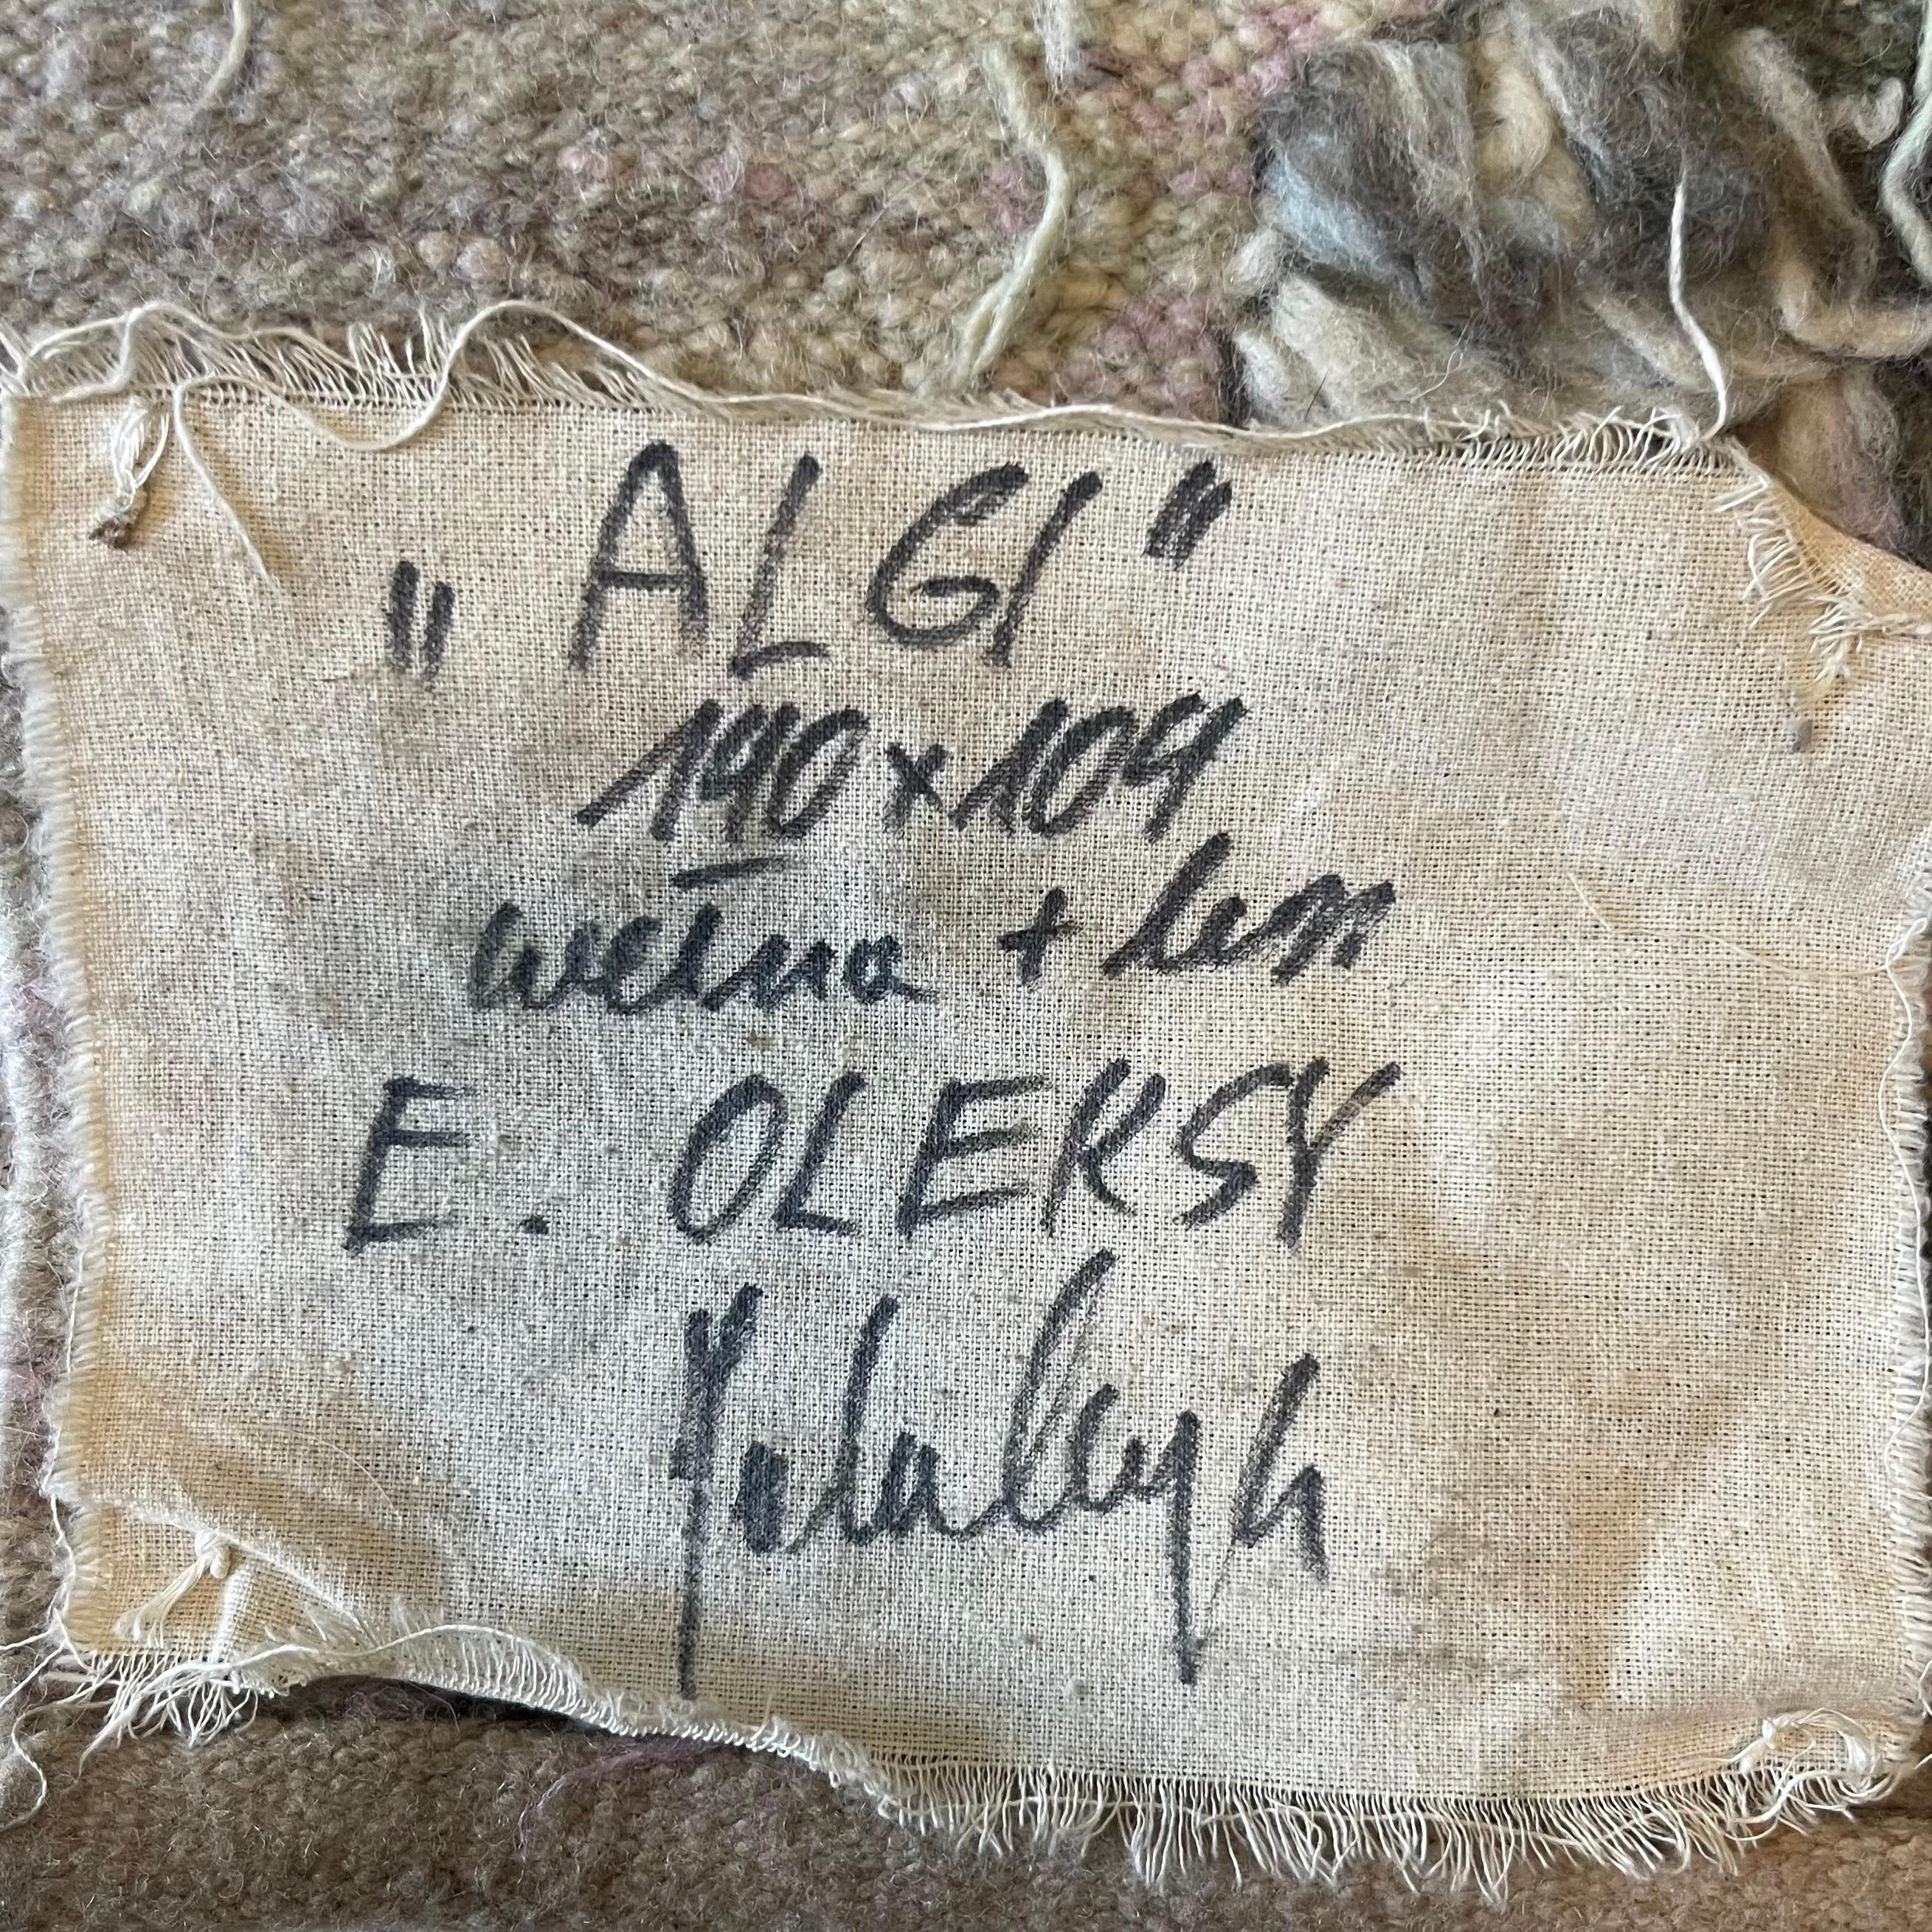 „ALGI"
140x109
wełna + len
E. OLEKSY